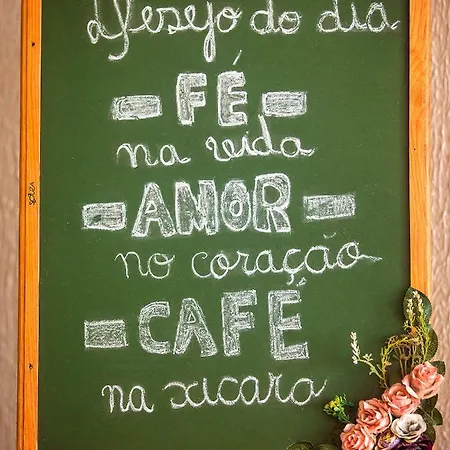 Desejo do dia
FÉ
na vida
AMOR
no coração
CAFÉ
na xicara